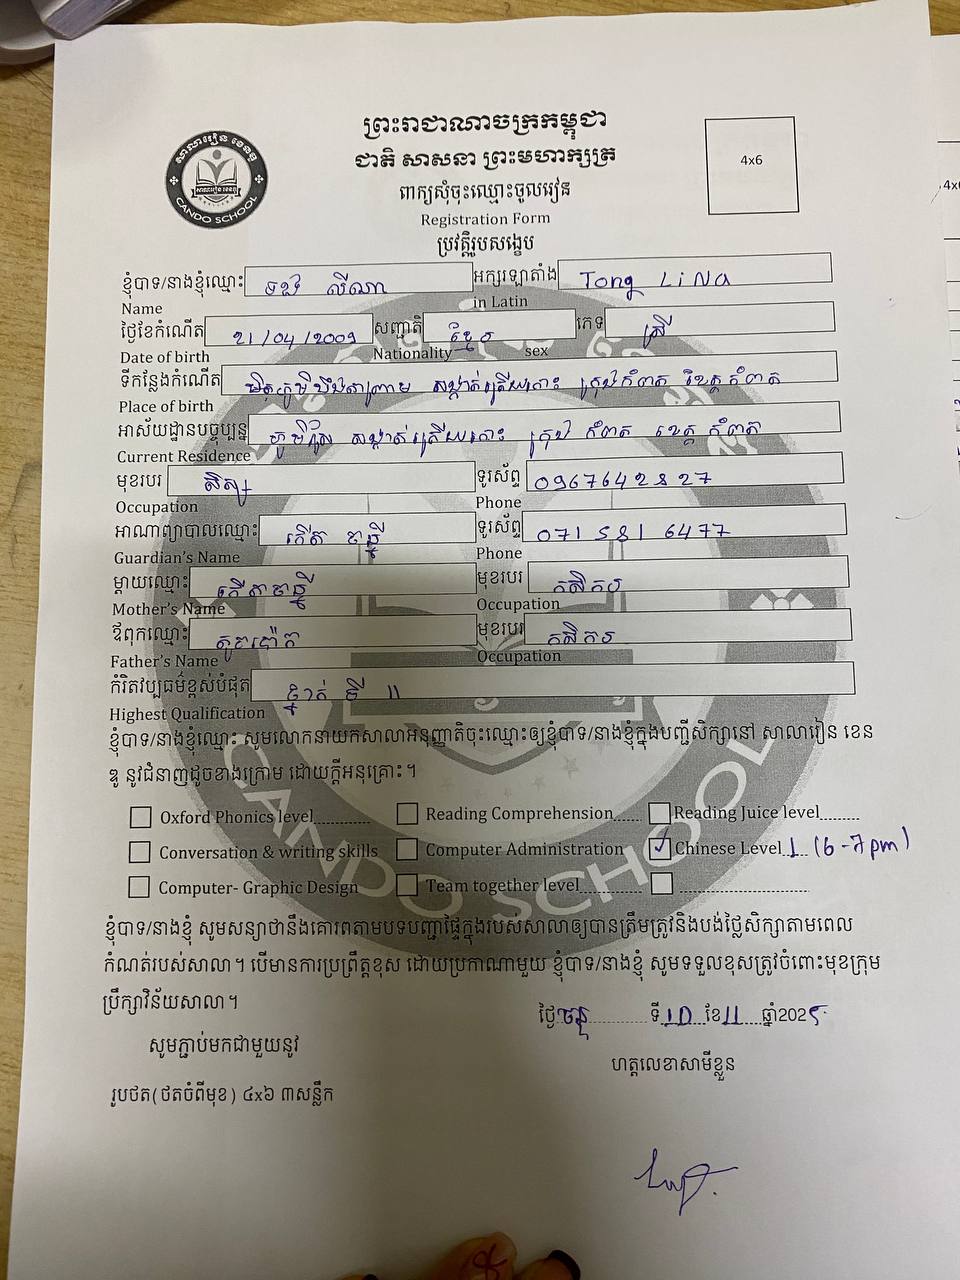 ព្រះរាជាណាចក្រកម្ពុជា
ជាតិ សាសនា ព្រះមហាក្សត្រ
សាលារៀន ខេនឌូ
CANDO SCHOOL
4x6
ពាក្យសុំចុះឈ្មោះចូលរៀន
Registration Form
ប្រវត្តិរូបសង្ខេប
ខ្ញុំបាទ/នាងខ្ញុំឈ្មោះ ទង លីណា អក្សរឡាតាំង Tong LiNa
Name in Latin
ថ្ងៃខែកំណើត 21/04/2009 សញ្ជាតិ ខ្មែរ ភេទ ស្រី
Date of birth Nationality sex
ទីកន្លែងកំណើត សង្កាត់ត្រើយកោះ ក្រុងកំពត ខេត្តកំពត
Place of birth
អាស័យដ្ឋានបច្ចុប្បន្ន សង្កាត់ត្រើយកោះ ក្រុង កំពត ខេត្ត កំពត
Current Residence
មុខរបរ សិស្ស ទូរស័ព្ទ 0967642827
Occupation Phone
អាណាព្យាបាលឈ្មោះ ទូរស័ព្ទ 071 581 6477
Guardian's Name Phone
ម្តាយឈ្មោះ មុខរបរ កសិករ
Mother's Name Occupation
ឪពុកឈ្មោះ មុខរបរ កសិករ
Father's Name Occupation
កំរិតវប្បធម៌ខ្ពស់បំផុត ថ្នាក់ ទី 11
Highest Qualification
ខ្ញុំបាទ/នាងខ្ញុំឈ្មោះ សូមលោកនាយកសាលាអនុញ្ញាតិចុះឈ្មោះឲ្យខ្ញុំបាទ/នាងខ្ញុំក្នុងបញ្ជីសិក្សានៅ សាលារៀន ខេន
ឌូ នូវជំនាញដូចខាងក្រោម ដោយក្តីអនុគ្រោះ។
Oxford Phonics level............ Reading Comprehension...... Reading Juice level.......
Conversation & writing skills Computer Administration ✓ Chinese Level 1 (6-7pm)
Computer- Graphic Design Team together level.............
ខ្ញុំបាទ/នាងខ្ញុំ សូមសន្យាថានឹងគោរពតាមបទបញ្ជាផ្ទៃក្នុងរបស់សាលាឲ្យបានត្រឹមត្រូវនិងបង់ថ្លៃសិក្សាតាមពេល
កំណត់របស់សាលា។ បើមានការប្រព្រឹត្តខុស ដោយប្រកាណាមួយ ខ្ញុំបាទ/នាងខ្ញុំ សូមទទួលខុសត្រូវចំពោះមុខក្រុម
ប្រឹក្សាវិន័យសាលា។
ថ្ងៃ ចន្ទ ទី 10 ខែ 11 ឆ្នាំ2025
សូមភ្ជាប់មកជាមួយនូវ
ហត្ថលេខាសាមីខ្លួន
រូបថត(ថតចំពីមុខ) ៤x៦ ៣សន្លឹក